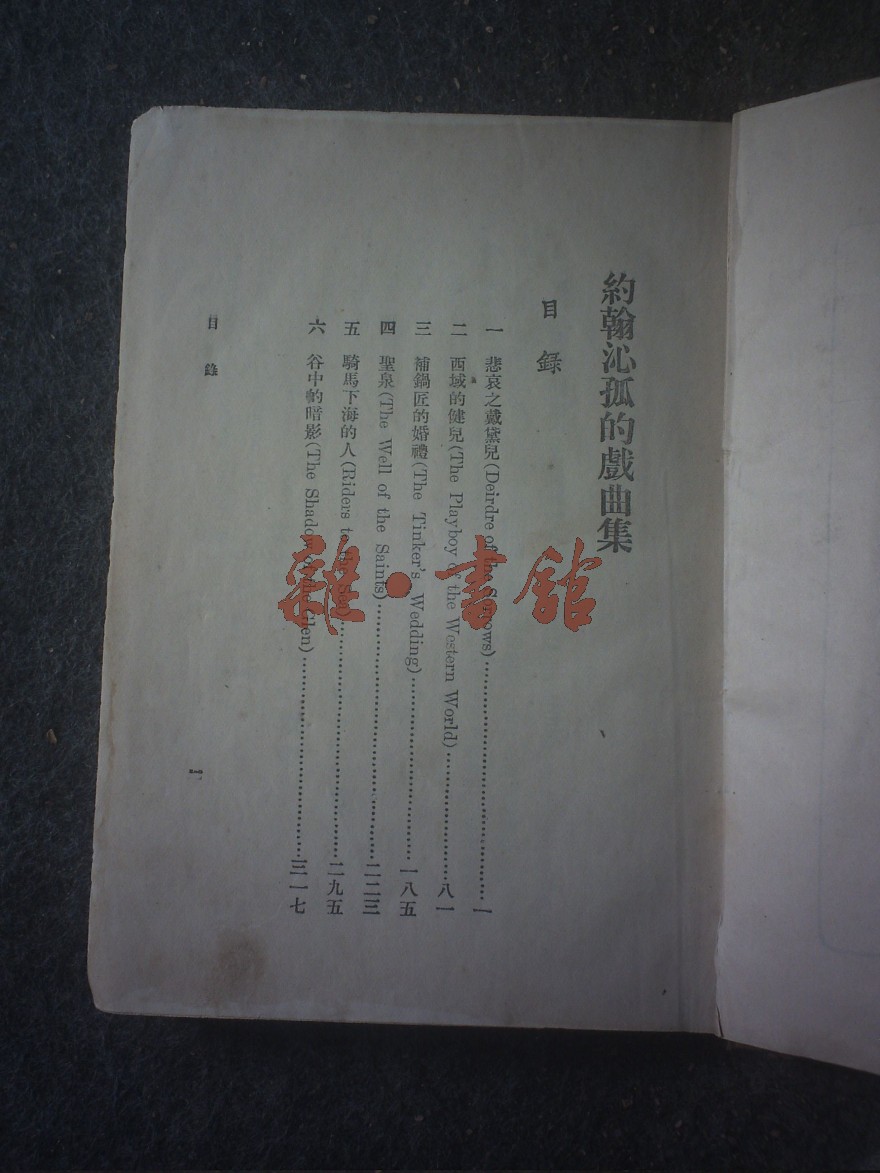 約翰沁孤的戲曲集
目錄
一 悲哀之戴黛兒(Deirdre of the Sorrows)……………………一
二 西域的健兒(The Playboy of the Western World)……………………八一
三 補鍋匠的婚禮(The Tinker's Wedding)……………………一八五
四 聖泉(The Well of the Saints)……………………二二三
五 騎馬下海的人(Riders to the Sea)……………………二九五
六 谷中的暗影(The Shadow of the Glen)……………………三一七
目錄
一
雜·書館